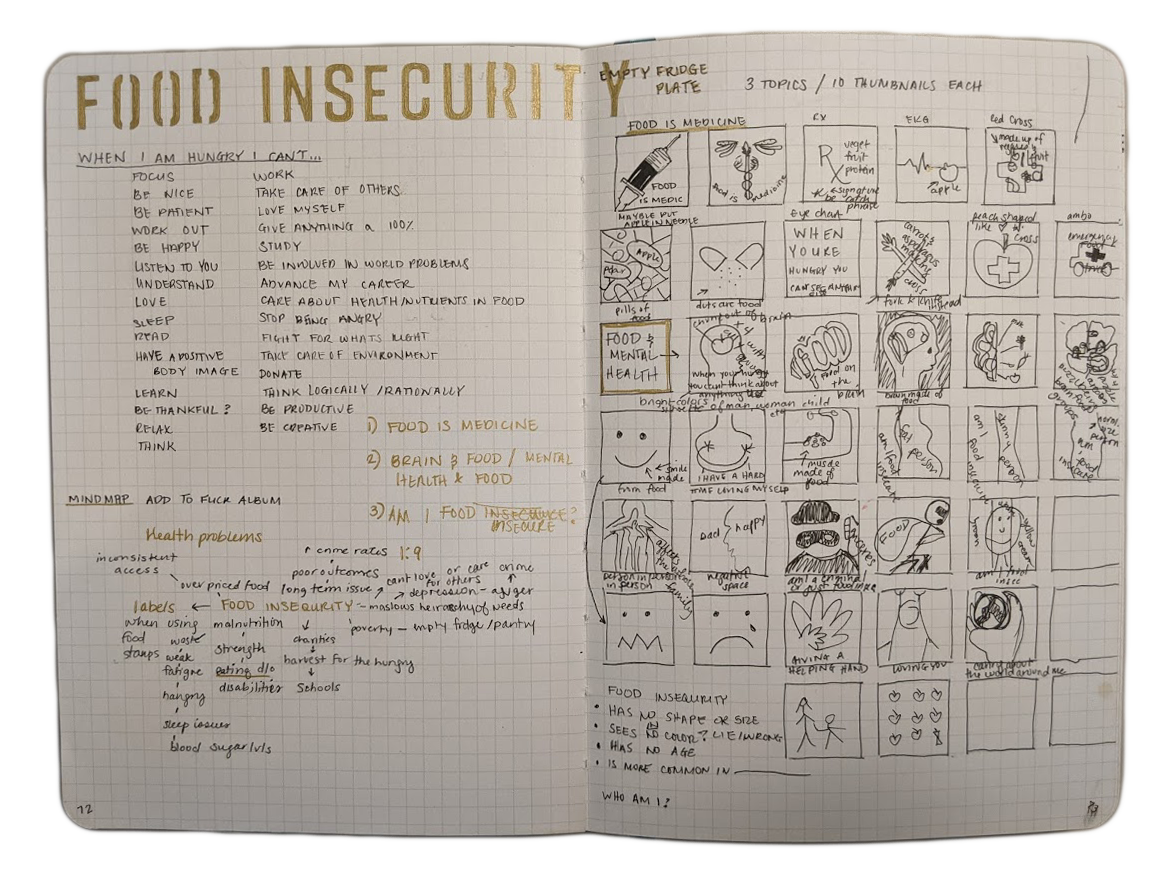 FOOD INSECURITY
WHEN I AM HUNGRY I CAN'T...
FOCUS
BE NICE
BE PATIENT
WORK OUT
BE HAPPY
LISTEN TO YOU
UNDERSTAND
LOVE
SLEEP
READ
HAVE A POSITIVE
BODY IMAGE
LEARN
BE THANKFUL?
RELAX
THINK
WORK
TAKE CARE OF OTHERS
LOVE MYSELF
GIVE ANYTHING a 100%
STUDY
BE INVOLVED IN WORLD PROBLEMS
ADVANCE MY CAREER
CARE ABOUT HEALTH/NUTIENTS IN FOOD
STOP BEING ANGRY
FIGHT FOR WHATS RIGHT
TAKE CARE OF ENVIRONMENT
DONATE
THINK LOGICALLY / RATIONALLY
BE PRODUCTIVE
BE CREATIVE
1) FOOD IS MEDICINE
2) BRAIN & FOOD / MENTAL
HEALTH & FOOD
3) AM I FOOD
INSECURE?
MINDMAP ADD TO FLICR ALBUM
Health problems
inconsistent
access
↑ crime rates 1:9
poor outcomes
cant love or care
for others
crime
over priced food
long term issue
depression - anger
labels ← FOOD INSEQURITY - maslows heirarchy of needs
when using
food
stamps
malnutrition
poverty - empty fridge/pantry
waste
weak
fatigue
hangry
sleep issues
blood sugar lvls
strength
eating d/o
disabilities
charities
harvest for the hungry
Schools
72
EMPTY FRIDGE
PLATE
3 TOPICS / 10 THUMBNAILS EACH
FOOD IS MEDICINE
RX
EKG
Red Cross
FOOD
IS MEDIC
food is medicine
Rx
veget
fruit
protein
signature
be catch
phrase
apple
made up of
fruit
MAYBLE PUT
APPLE IN NEEDLE
Eye chart
peach shaped
like
cross
ambo
Apple
Pear
WHEN
YOU'RE
HUNGRY YOU
CANT SEE ANYTHING
carrot &
asparagus
making
cross
emergency
food
truck
pills of
food
dots are food
fork & knife
FOOD &
MENTAL
HEALTH
chomp out of brain
when your hungry
you cant think about
anything else
food on
the brain
brain made of
food
bright colors
of man, woman child
etc
smile
made
from food
I HAVE A HARD
TIME LOVING MYSELF
muscle
made of
food
am I food
insecure
fat
person
am I
food
insecure
skinny
person
normal
size
person
am I
food
insecure
person in person
in person
affects
the whole
family
sad
happy
negative
space
am I a criminal
or just food insec
FOOD
am I food
insec
GIVING A
HELPING HAND
LOVING YOU
caring about
the world around me
FOOD INSEQURITY
• HAS NO SHAPE OR SIZE
• SEES NO COLOR? LIE/WRONG
• HAS NO AGE
• IS MORE COMMON IN
WHO AM I?